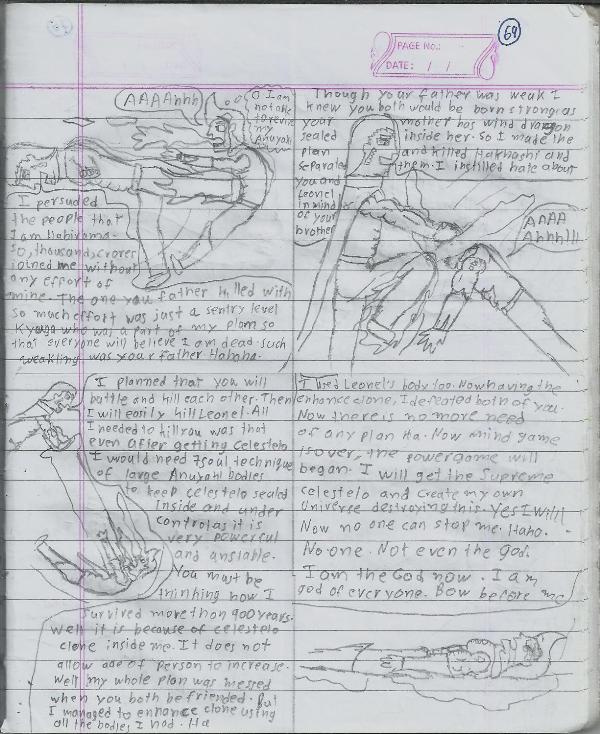 69
PAGE NO.:
DATE: / /
AAAAhhh
O I am
not able
to revive
my
Anuyahi
I persuaded
the people that
I am Hahirama.
So, thousand, crores
joined me without
any effort of
mine. The one you father killed with
so much effort was just a sentry level
Kyouga who was a part of my plan so
that everyone will believe I am dead. Such
weakling was your father Hahaha.
Though your father was weak I
knew you both would be born strong as
your mother has wind dragon
sealed inside her. So I made the
plan and killed Hakhashi and
separated them. I instilled hate about
you and
Leonel
in mind
of your
brother
AAAA
Ahhh!!!
I planned that you will
battle and kill each other. Then
I will easily kill Leonel. All
I needed to kill you was that
even after getting Celestelo
I would need 7 soul technique
of large Anuyahi bodies
to keep celestelo sealed
inside and under
control as it is
very powerful
and unstable.
You must be
thinking how I
survived more than 900 years.
Well it is because of celestelo
clone inside me. It does not
allow age of person to increase.
Well my whole plan was messed
when you both be friended. But
I managed to enhance clone using
all the bodies I had. Ha
I used Leonel's body too. Now having the
enhance clone, I defeated both of you.
Now there is no more need
of any plan Ha. Now mind game
is over, the power game will
began. I will get the Supreme
celestelo and create my own
Universe destroying this. Yes I will!
Now no one can stop me. Haha.
No one. Not even the God.
I am the God now. I am
god of everyone. Bow before me